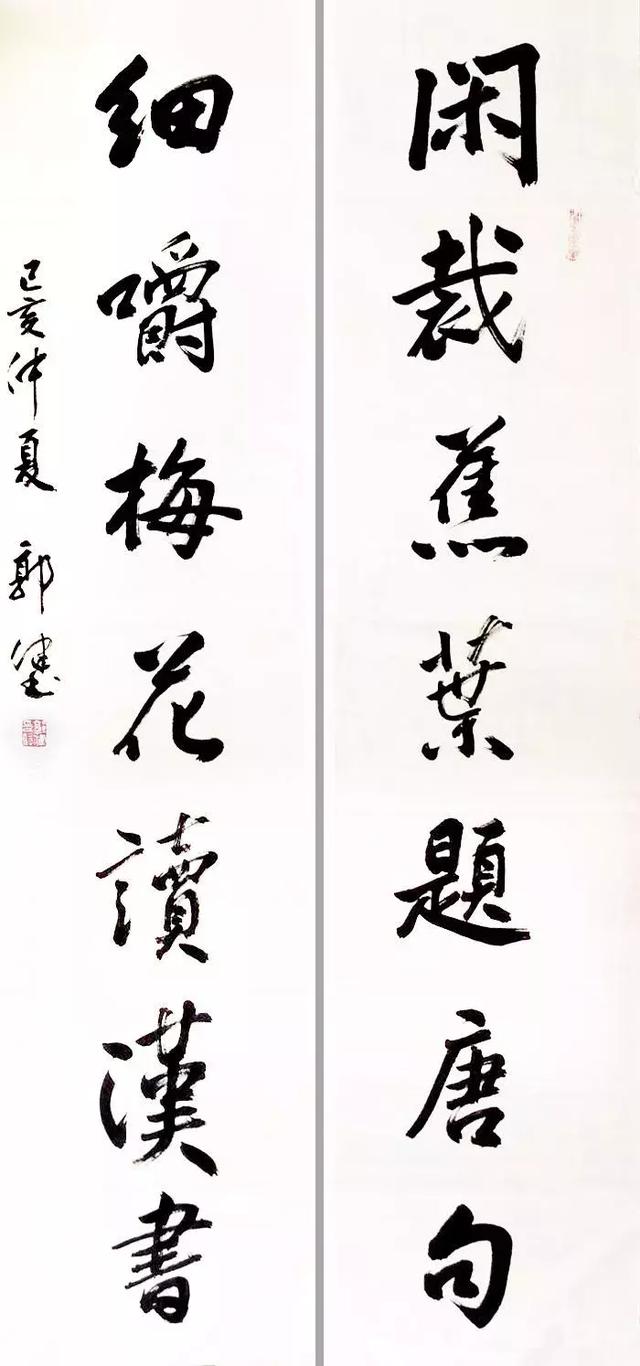 閑裁蕉葉題唐句
細嚼梅花讀漢書
己亥仲夏 郭健